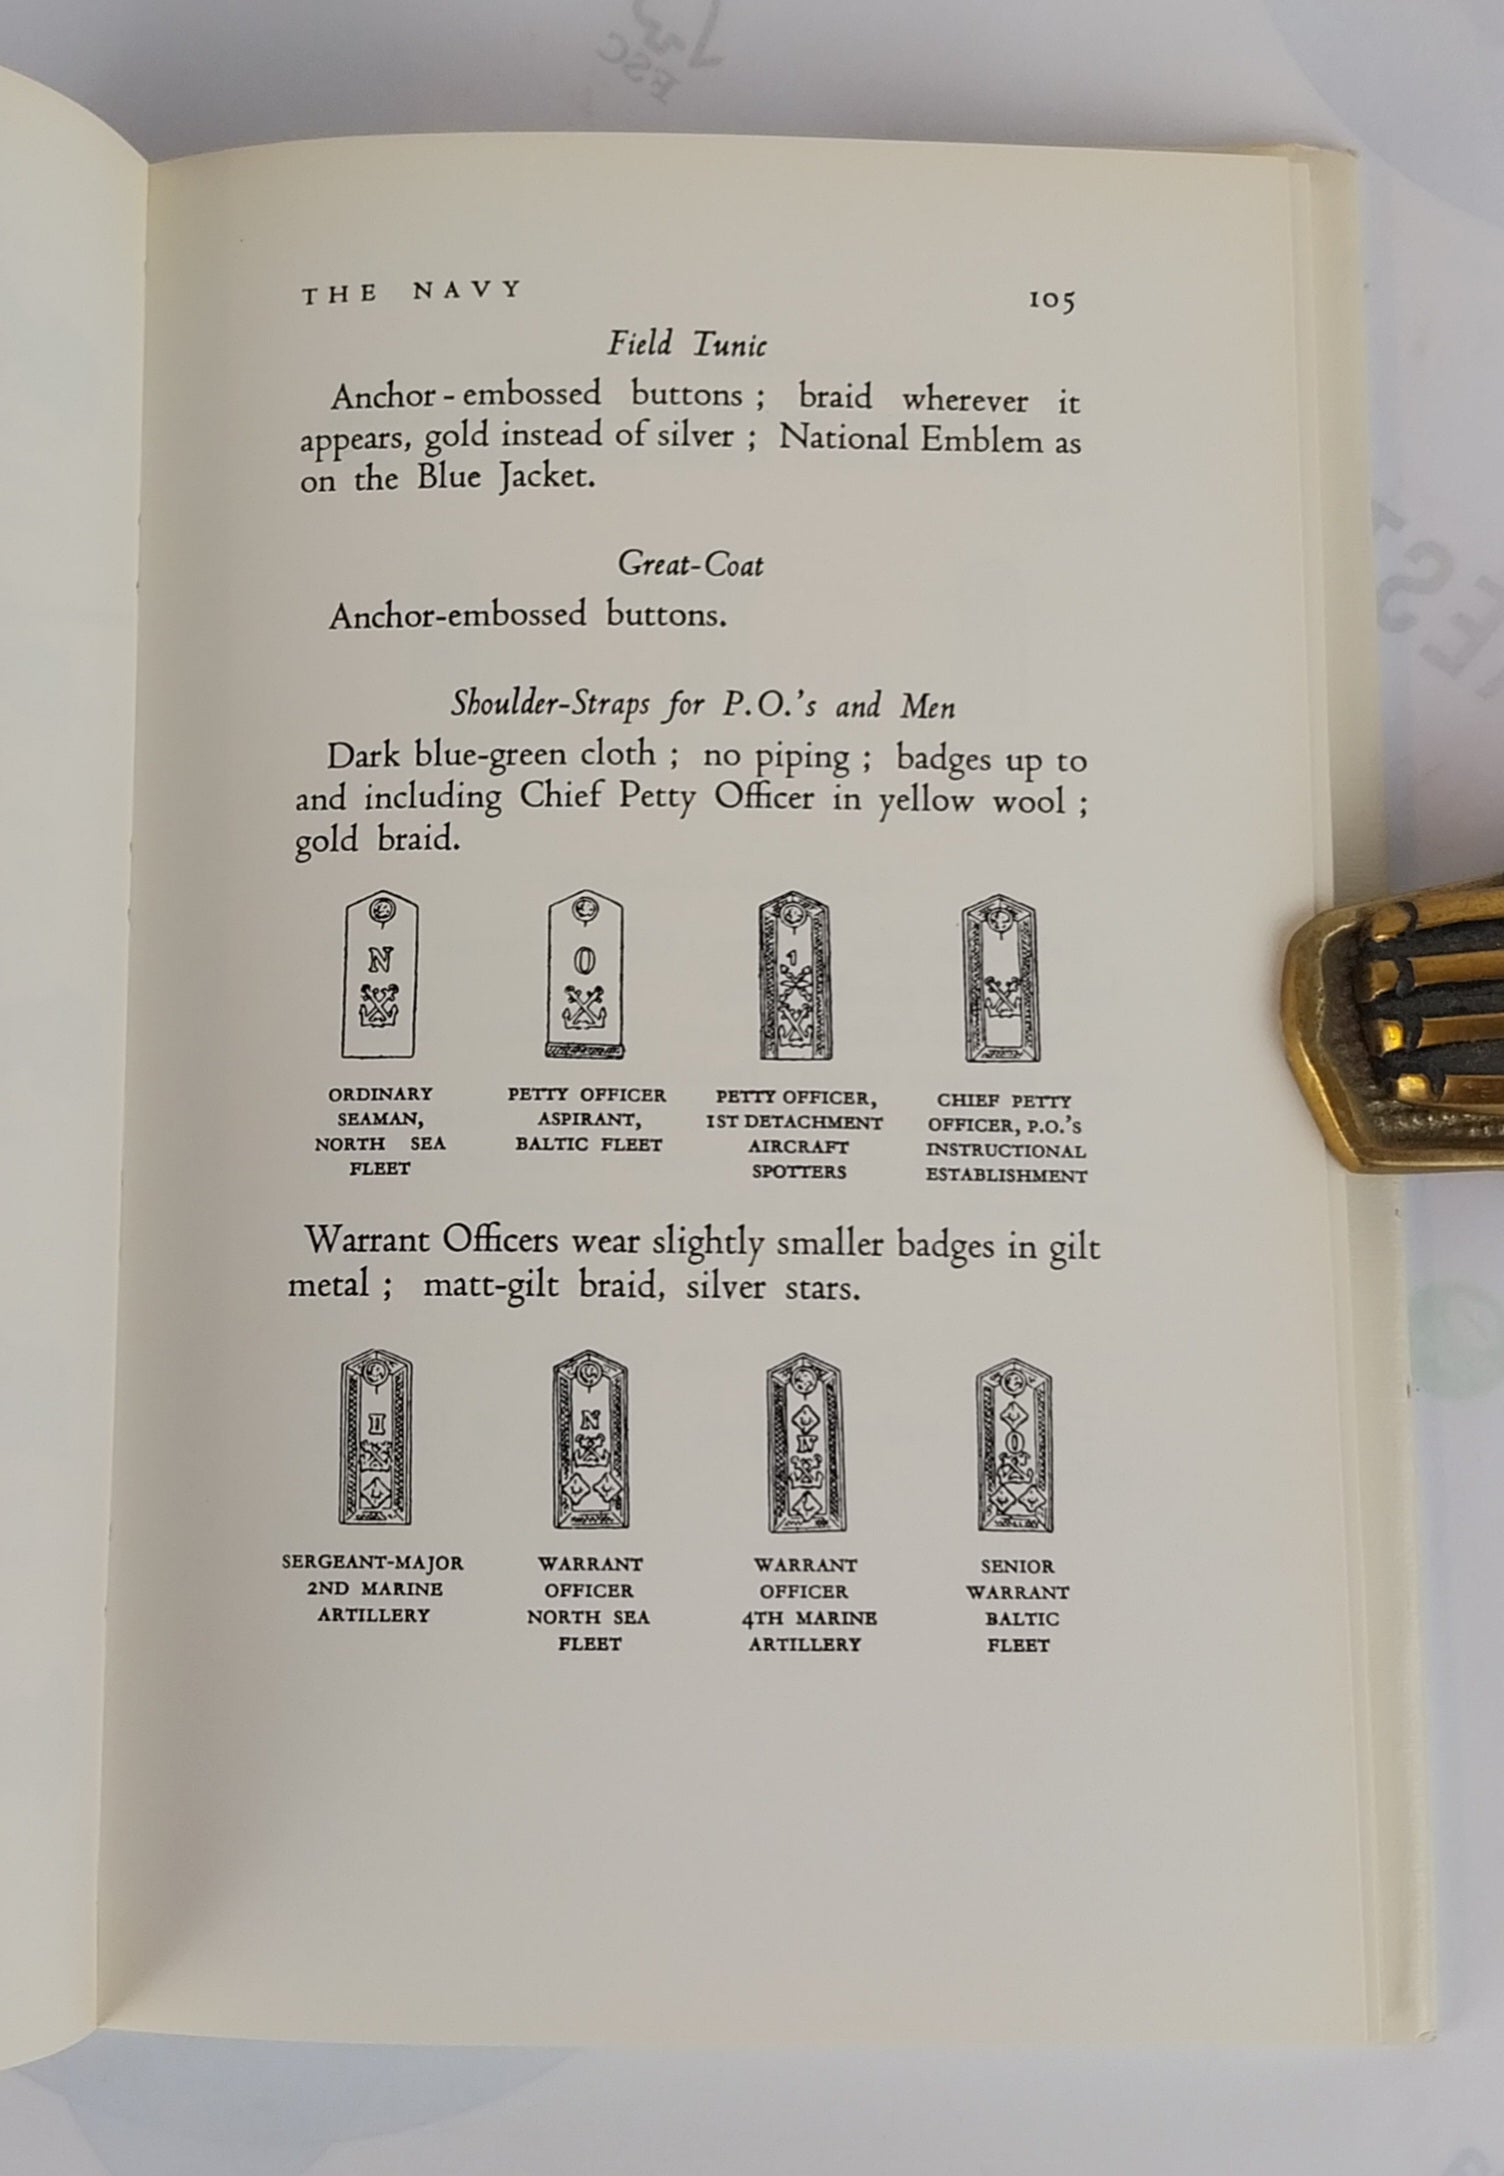 THE NAVY 105
Field Tunic
Anchor-embossed buttons ; braid wherever it
appears, gold instead of silver ; National Emblem as
on the Blue Jacket.
Great-Coat
Anchor-embossed buttons.
Shoulder-Straps for P.O.'s and Men
Dark blue-green cloth ; no piping ; badges up to
and including Chief Petty Officer in yellow wool ;
gold braid.
N
O
1
ORDINARY
SEAMAN,
NORTH SEA
FLEET
PETTY OFFICER
ASPIRANT,
BALTIC FLEET
PETTY OFFICER,
1ST DETACHMENT
AIRCRAFT
SPOTTERS
CHIEF PETTY
OFFICER, P.O.'S
INSTRUCTIONAL
ESTABLISHMENT
Warrant Officers wear slightly smaller badges in gilt
metal ; matt-gilt braid, silver stars.
II
N
O
SERGEANT-MAJOR
2ND MARINE
ARTILLERY
WARRANT
OFFICER
NORTH SEA
FLEET
WARRANT
OFFICER
4TH MARINE
ARTILLERY
SENIOR
WARRANT
BALTIC
FLEET
ESC